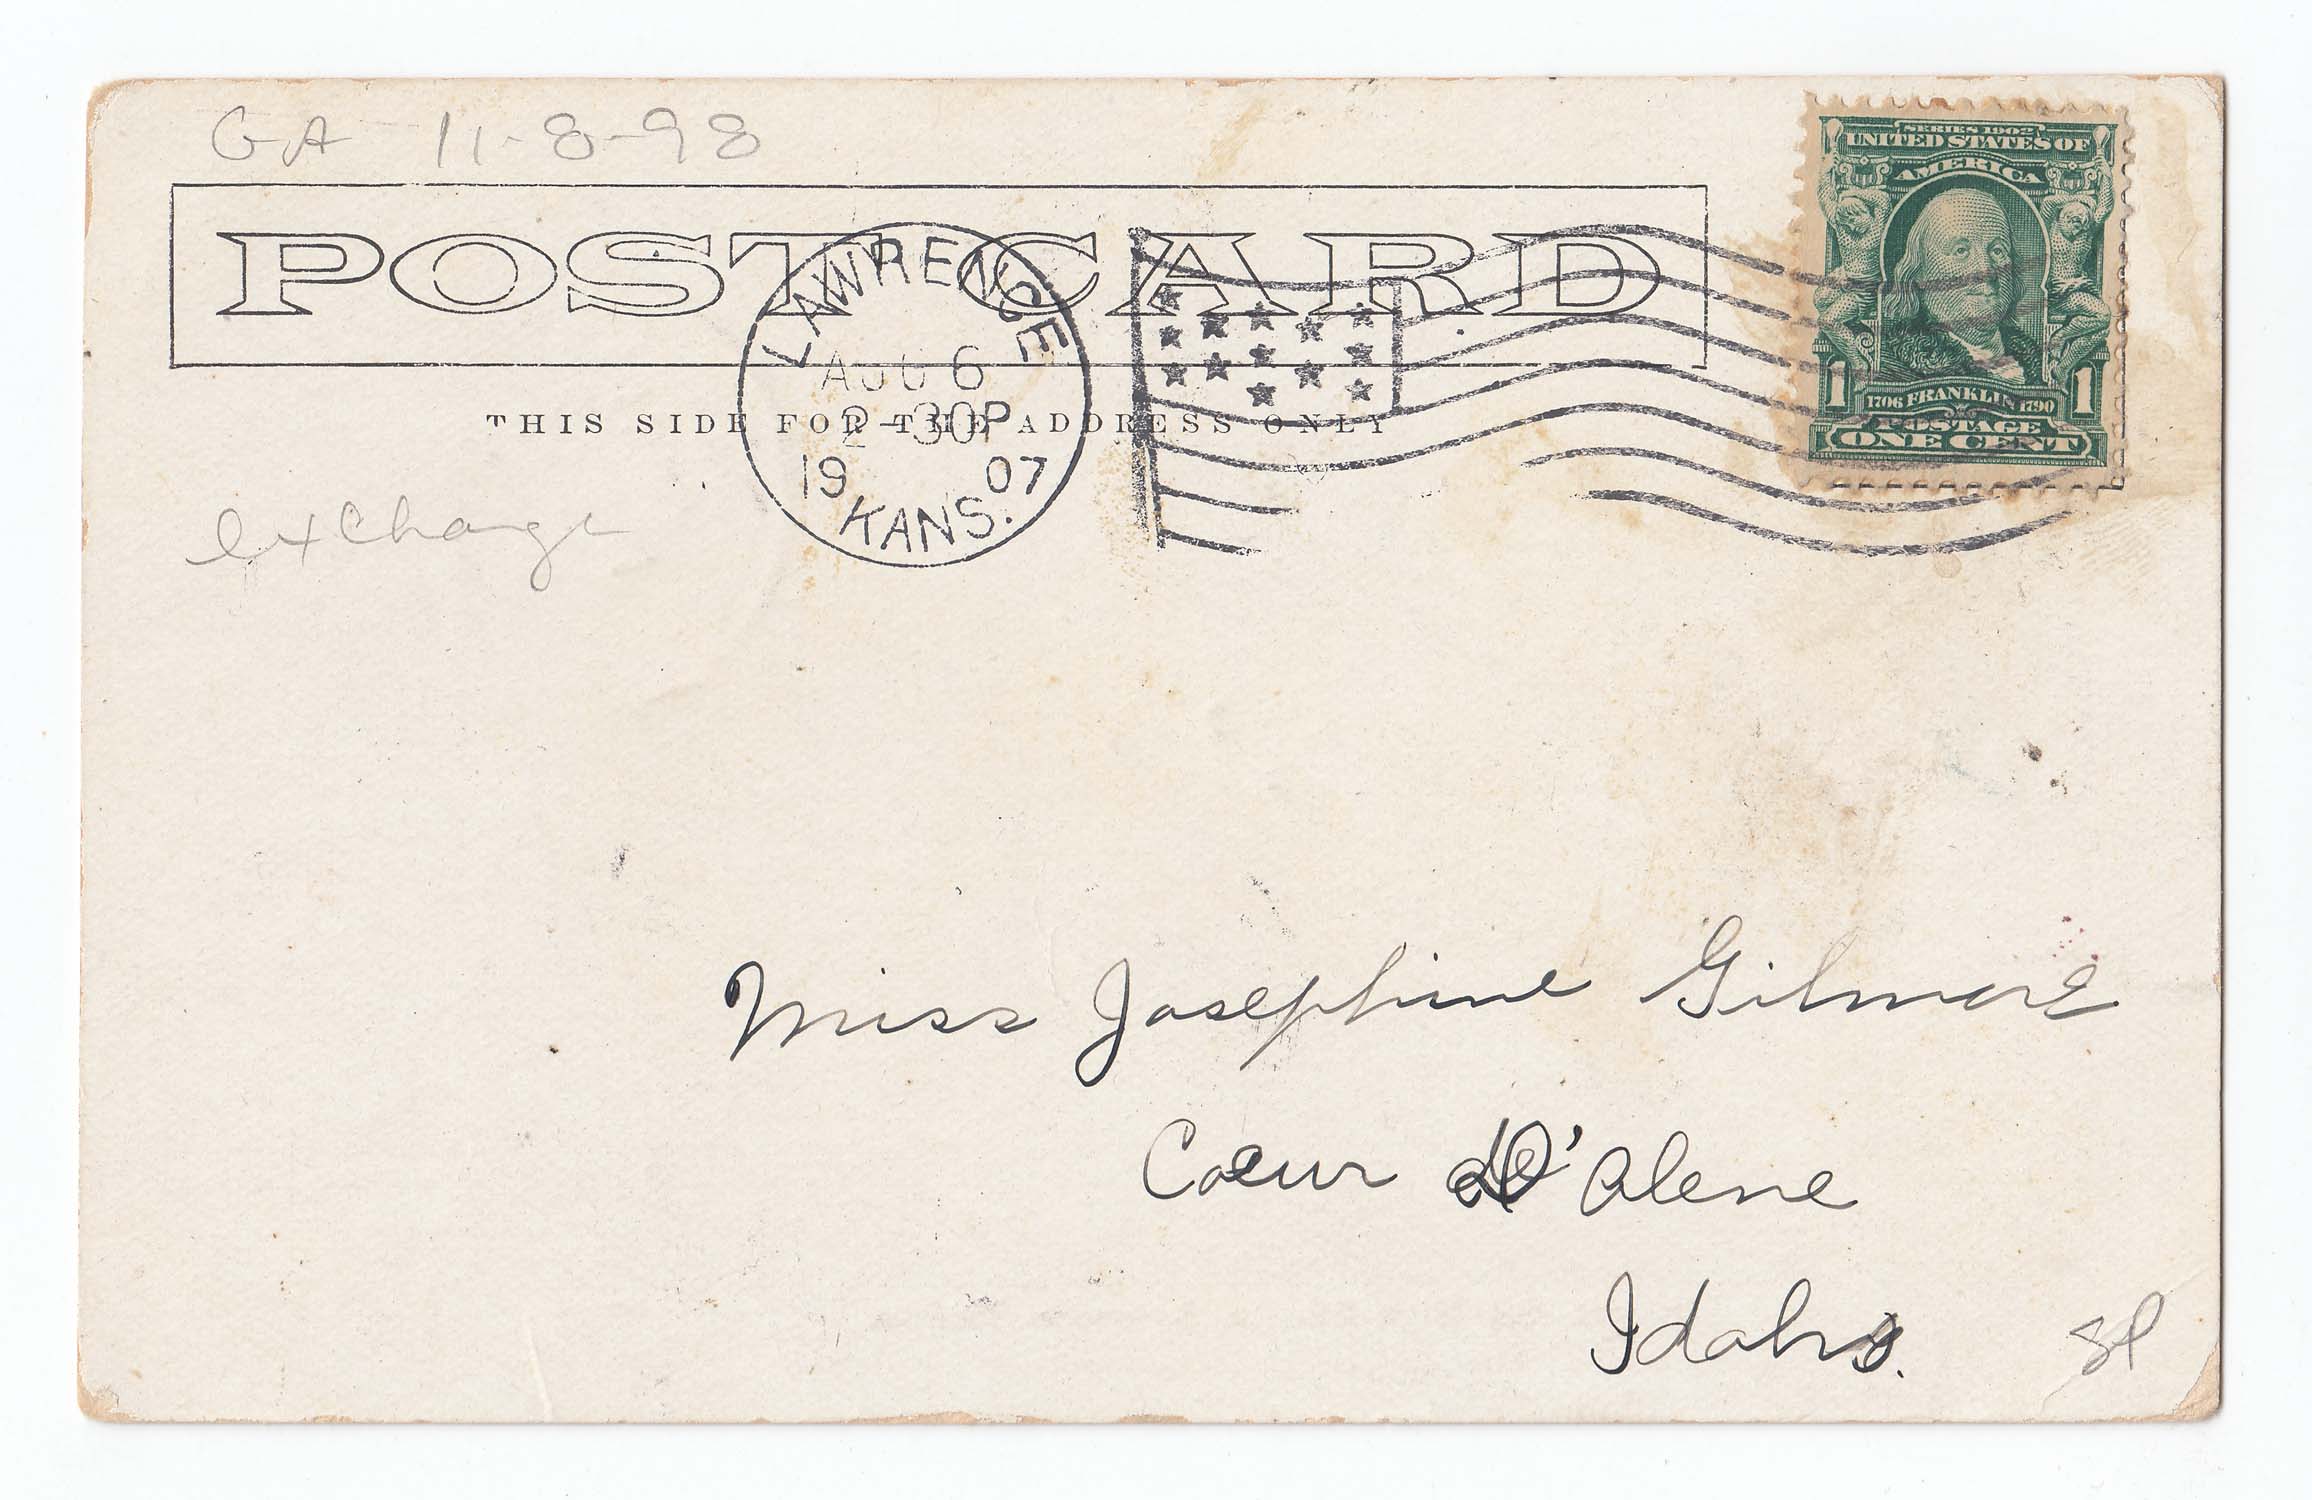 GA 11-8-98
POST CARD
THIS SIDE FOR THE ADDRESS ONLY
LAWRENCE
AUG 6
2-30P
1907
KANS.
SERIES 1902
UNITED STATES OF
AMERICA
1706 FRANKLIN 1790
1 1
POSTAGE
ONE CENT
exchange
Miss Josephine Gilmore
Coeur D'Alene
Idaho.